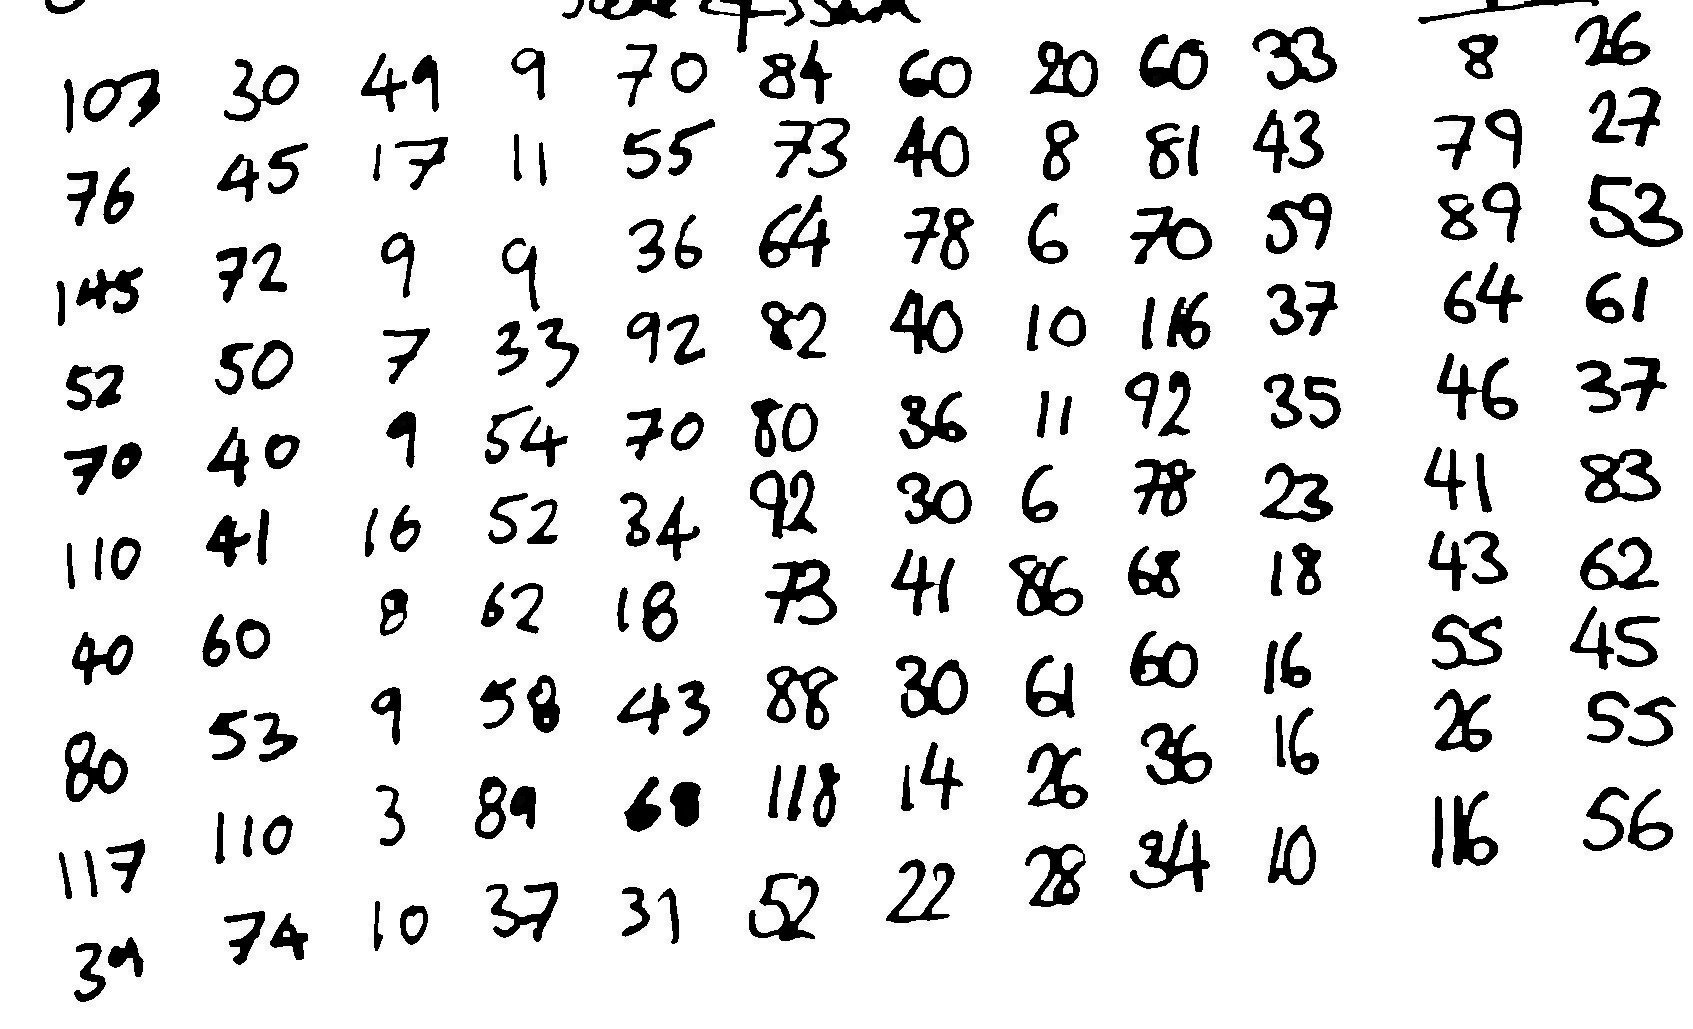 103 30 49 9 70 84 60 20 60 33 8 26
76 45 17 11 55 73 40 8 81 43 79 27
145 72 9 9 36 64 78 6 70 59 89 53
52 50 7 33 92 82 40 10 116 37 64 61
70 40 9 54 70 80 36 11 92 35 46 37
110 41 16 52 34 92 30 6 78 23 41 83
40 60 8 62 18 73 41 86 68 18 43 62
80 53 9 58 43 88 30 61 60 16 55 45
117 110 3 89 68 118 14 26 36 16 26 55
39 74 10 37 31 52 22 28 34 10 116 56